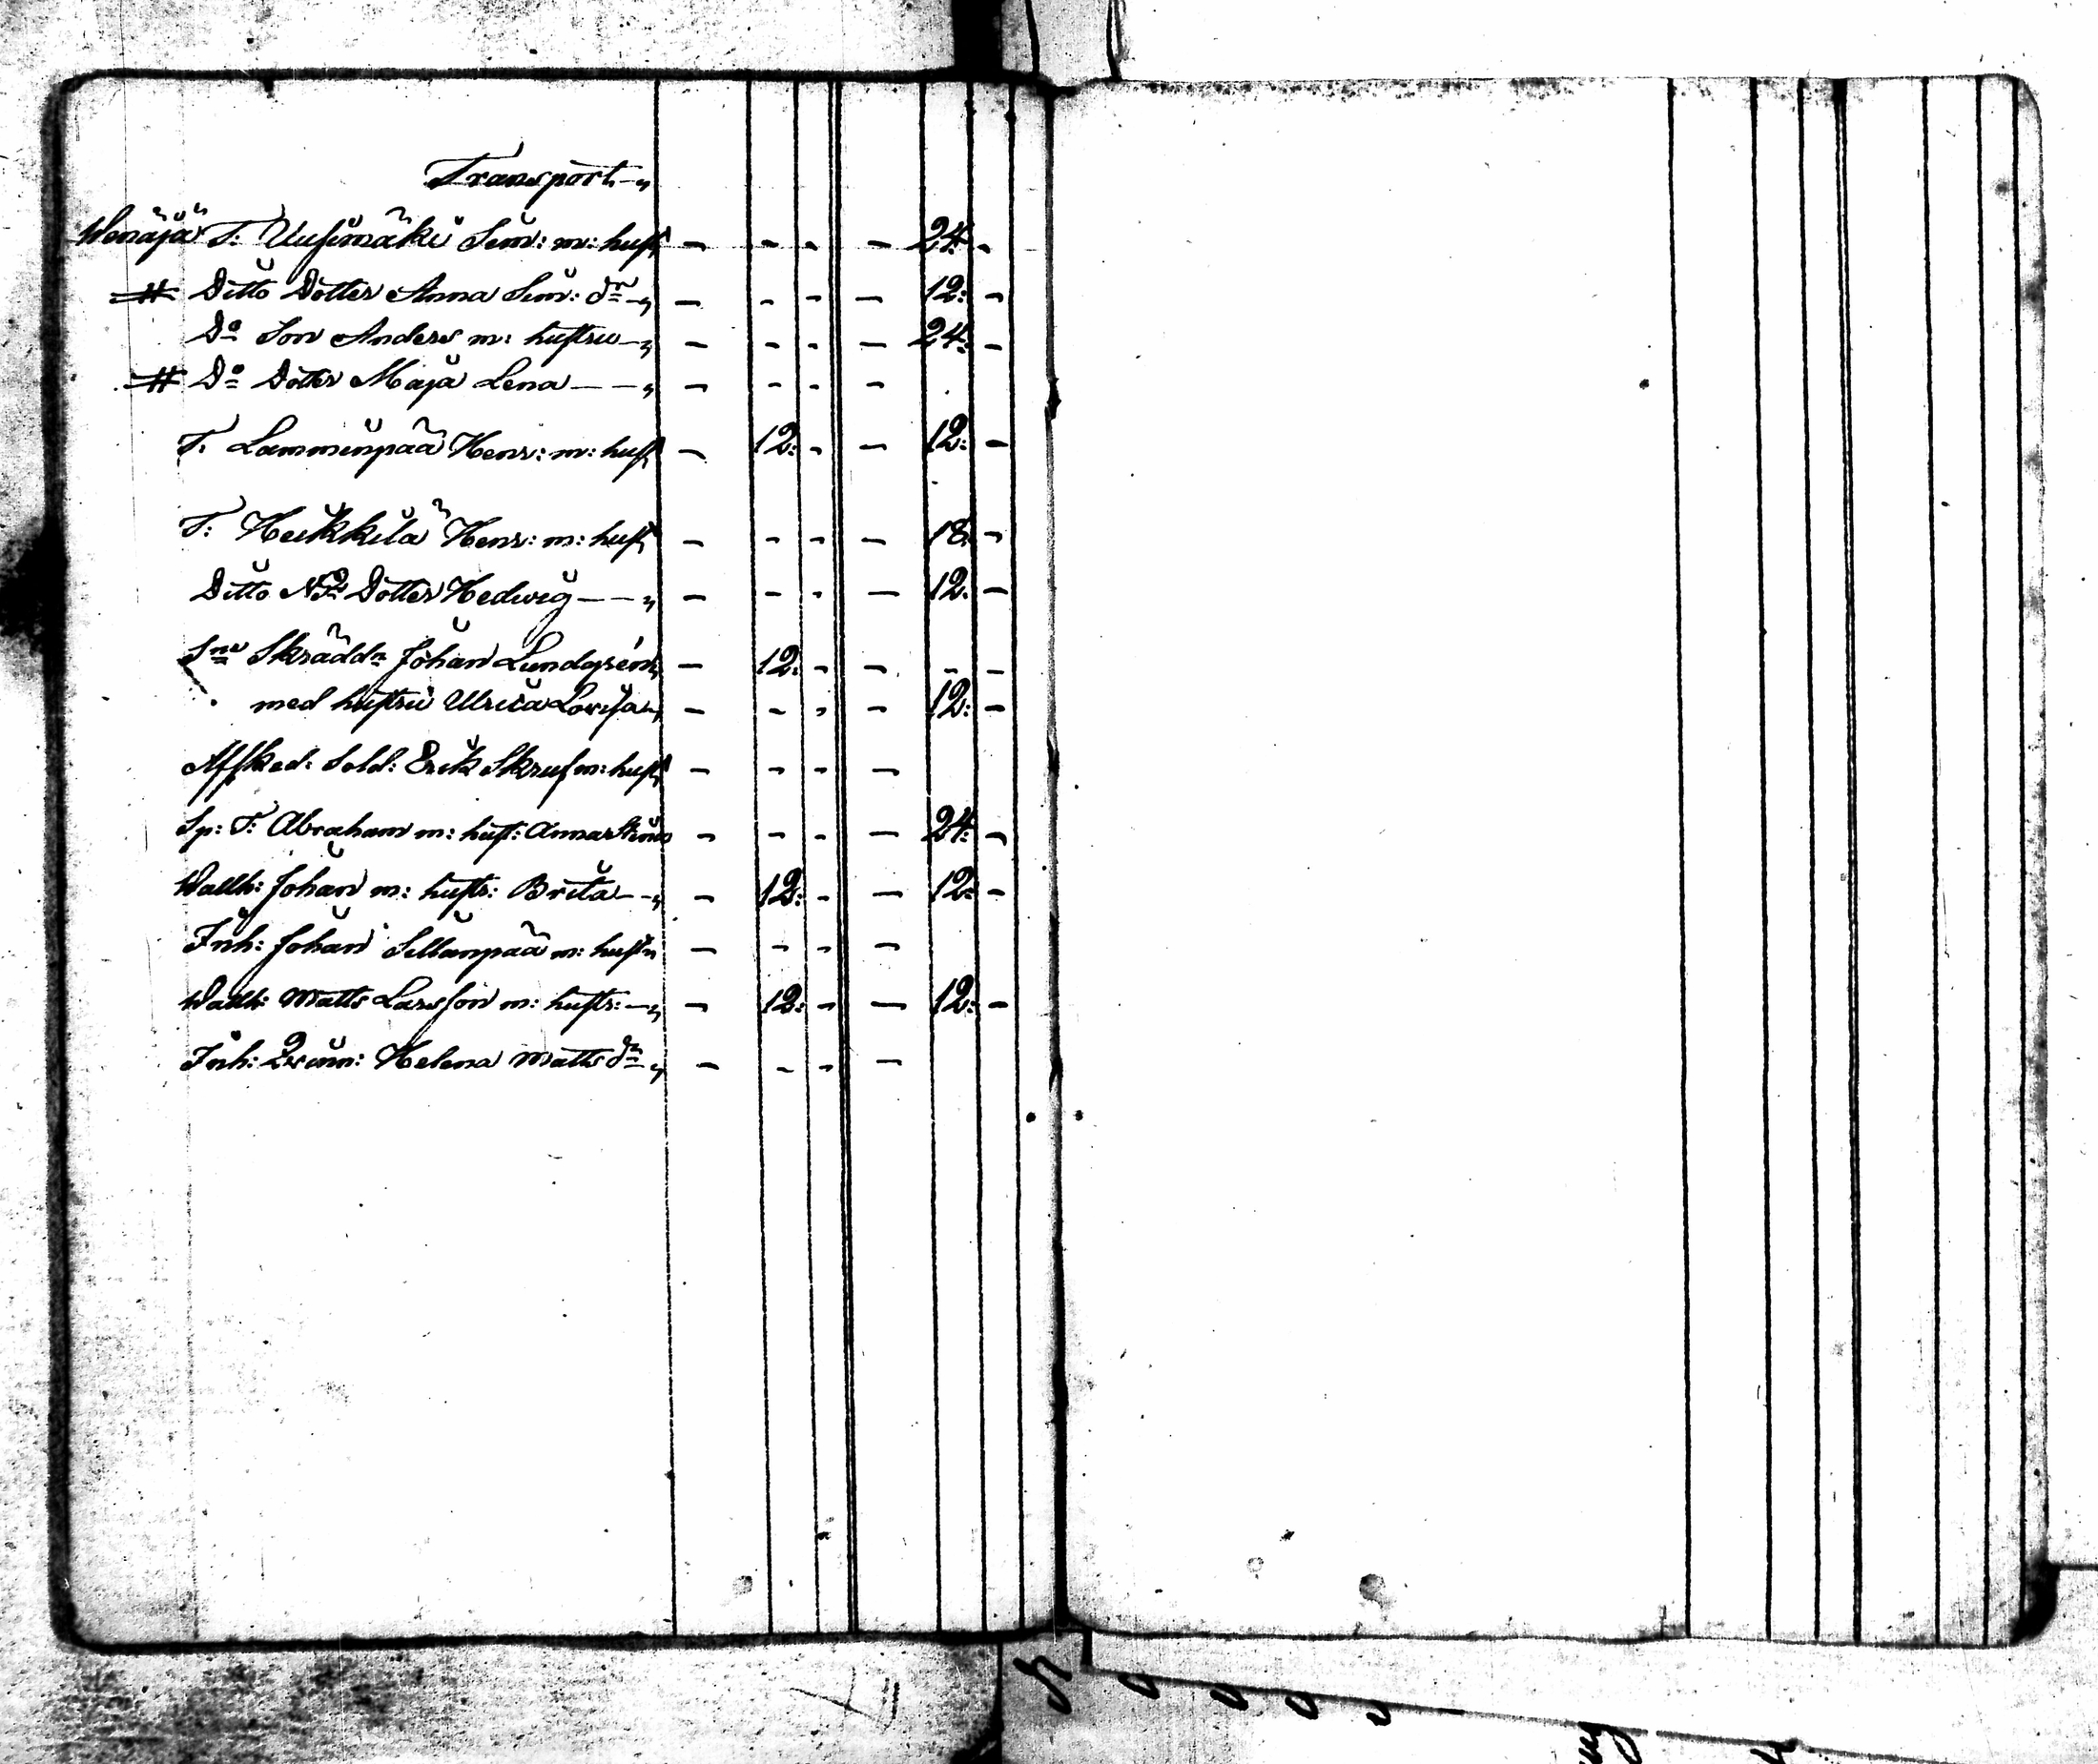 Transport „
Wenäjä T: Uusimäki Sim: m: hust - - - - 24: -
# Ditto Dotter Anna Sim: dr „ - - - - 12: -
Do Son Anders m: hustru „ - - - - 24: -
# Do Dotter Maja Lena — — „ - - - -
T. Lamminpää Henr: m: hust - 12: - - 12: -
T: Heikkilä Henr: m: hust - - - - 18: -
Ditto Dotter Hedwig — — „ - - - - 12: -
Skräddr Johan Lundgrén - 12: - - - -
med hustru Ulrica Lovisa „ - - - - 12: -
Affked: Sold: Erik Skruf m: hust - - - -
Sp: T: Abraham m: hust: Anna Stina - - - - 24: -
Wallh: Johan m: hustr: Brita — „ - 12: - - 12: -
Inh: Johan Sillanpää m: hust „ - - - -
Wallh: Matts Larsson m: hustr: — „ - 12: - - 12: -
Inh: Qvinn: Helena Matts dr „ - - - -